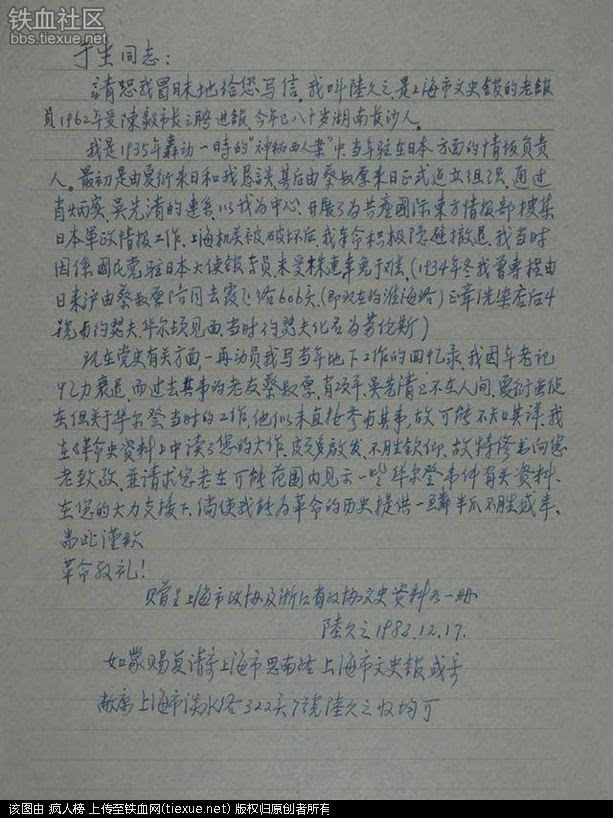 铁血社区
bbs.tiexue.net
于生同志：
請恕我冒昧地给您写信，我叫陸久之，是上海市文史馆的老馆
員1962年受陳毅市长之聘進馆，今年已八十岁湖南長沙人。
我是1935年轰动一时的"神秘西人案"中，当年驻在日本方面的情报负责
人。最初是由夏衍来日和我恳談，其后由蔡叔厚来日正式建立组织，通过
肖炳实、吴先清的連系，以我为中心，开展了为共產國际東方情报部搜集
日本軍政情报工作，上海机关被破坏后，我奉命积极隐避撤退，我当时
因係國民党驻日本大使馆专员，未受株連幸免于难。(1934年冬我曾專程由
日来沪由蔡叔厚陪同去霞飞路606弄，(即现在的淮海路)正章洗染店后4
號与约瑟夫·华尔顿见面，当时约瑟夫化名为劳伦斯)
现在党史有关方面，一再动员我写当年地下工作的回忆录，我因年老记
忆力衰退，而过去共事的老友蔡叔厚，肖项平，吴先清已不在人间，夏衍虽健
在但关于华尔登当时的工作，他们未直接参与其事，故可能不知其详，我
在《革命史資料》中读了您的大作，
启发，不胜钦仰，故特修书向您
老致敬，並請求您老在可能范围内见示一些华尔登事件有关資料、
在您的大力支援下，倘使我能为革命的历史提供一鳞半爪不胜感幸。
耑此谨致
革命敬礼！
赠呈上海市政协及浙江省政协文史資料各一册
陸久之1982.12.17.
如蒙赐复请寄上海市思南路上海市文史馆或寄
敝寓上海市淡水路322弄7號陸久之收均可
该图由 疯人榜 上传至铁血网(tiexue.net) 版权归原创者所有